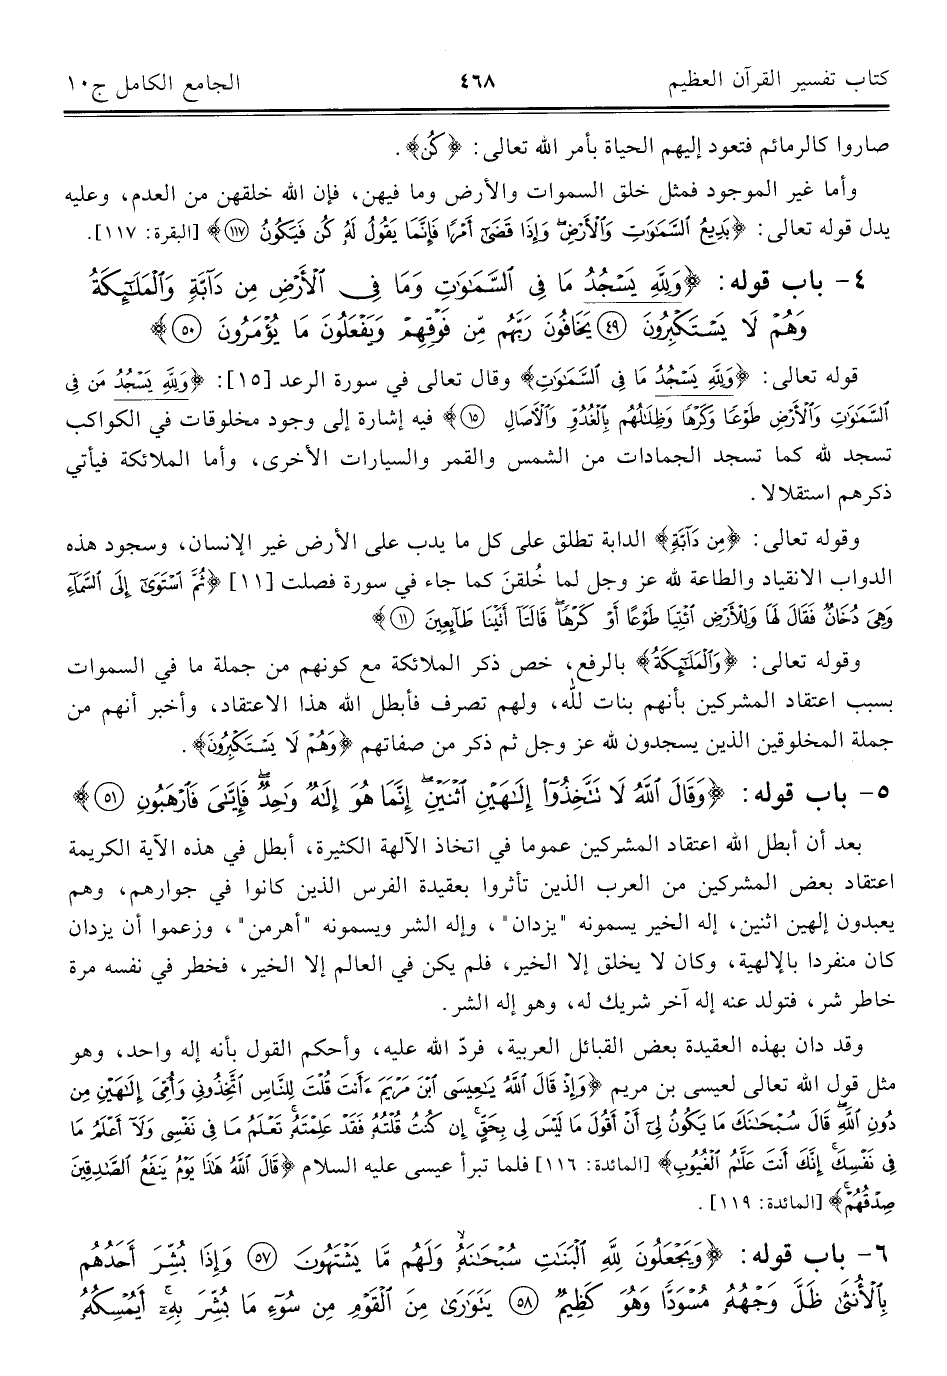 كتاب تفسير القرآن العظيم ٤٦٨ الجامع الكامل ج١٠
صاروا كالرمائم فتعود إليهم الحياة بأمر الله تعالى: ﴿كُن﴾.
وأما غير الموجود فمثل خلق السموات والأرض وما فيهن، فإن الله خلقهن من العدم، وعليه
يدل قوله تعالى: ﴿بَدِيعُ ٱلسَّمَٰوَٰتِ وَٱلۡأَرۡضِۖ وَإِذَا قَضَىٰٓ أَمۡرٗا فَإِنَّمَا يَقُولُ لَهُۥ كُن فَيَكُونُ ١١٧﴾ [البقرة: ١١٧].
٤- باب قوله: ﴿وَلِلَّهِ يَسۡجُدُۤ مَا فِي ٱلسَّمَٰوَٰتِ وَمَا فِي ٱلۡأَرۡضِ مِن دَآبَّةٖ وَٱلۡمَلَٰٓئِكَةُ
وَهُمۡ لَا يَسۡتَكۡبِرُونَ ٤٩ يَخَافُونَ رَبَّهُم مِّن فَوۡقِهِمۡ وَيَفۡعَلُونَ مَا يُؤۡمَرُونَ ٥٠﴾
قوله تعالى: ﴿وَلِلَّهِ يَسۡجُدُۤ مَا فِي ٱلسَّمَٰوَٰتِ﴾ وقال تعالى في سورة الرعد [١٥]: ﴿وَلِلَّهِۤ يَسۡجُدُۤ مَن فِي
ٱلسَّمَٰوَٰتِ وَٱلۡأَرۡضِ طَوۡعٗا وَكَرۡهٗا وَظِلَٰلُهُم بِٱلۡغُدُوِّ وَٱلۡأٓصَالِ ١٥﴾ فيه إشارة إلى وجود مخلوقات في الكواكب
تسجد لله كما تسجد الجمادات من الشمس والقمر والسيارات الأخرى، وأما الملائكة فيأتي
ذكرهم استقلالا.
وقوله تعالى: ﴿مِن دَآبَّةٖ﴾ الدابة تطلق على كل ما يدب على الأرض غير الإنسان، وسجود هذه
الدواب الانقياد والطاعة لله عز وجل لما خُلقنَ كما جاء في سورة فصلت [١١] ﴿ثُمَّ ٱسۡتَوَىٰٓ إِلَى ٱلسَّمَآءِ
وَهِيَ دُخَانٞ فَقَالَ لَهَا وَلِلۡأَرۡضِ ٱئۡتِيَا طَوۡعًا أَوۡ كَرۡهٗا قَالَتَآ أَتَيۡنَا طَآئِعِينَ ١١﴾
وقوله تعالى: ﴿وَٱلۡمَلَٰٓئِكَةُ﴾ بالرفع، خص ذكر الملائكة مع كونهم من جملة ما في السموات
بسبب اعتقاد المشركين بأنهم بنات لله، ولهم تصرف فأبطل الله هذا الاعتقاد، وأخبر أنهم من
جملة المخلوقين الذين يسجدون لله عز وجل ثم ذكر من صفاتهم ﴿وَهُمۡ لَا يَسۡتَكۡبِرُونَ﴾.
٥- باب قوله: ﴿وَقَالَ ٱللَّهُ لَا تَتَّخِذُوٓاْ إِلَٰهَيۡنِ ٱثۡنَيۡنِۖ إِنَّمَا هُوَ إِلَٰهٞ وَٰحِدٞ فَإِيَّٰيَ فَٱرۡهَبُونِ ٥١﴾
بعد أن أبطل الله اعتقاد المشركين عموما في اتخاذ الآلهة الكثيرة، أبطل في هذه الآية الكريمة
اعتقاد بعض المشركين من العرب الذين تأثروا بعقيدة الفرس الذين كانوا في جوارهم، وهم
يعبدون إلهين اثنين، إله الخير يسمونه "يزدان"، وإله الشر ويسمونه "أهرمن"، وزعموا أن يزدان
كان منفردا بالإلهية، وكان لا يخلق إلا الخير، فلم يكن في العالم إلا الخير، فخطر في نفسه مرة
خاطر شر، فتولد عنه إله آخر شريك له، وهو إله الشر.
وقد دان بهذه العقيدة بعض القبائل العربية، فردّ الله عليه، وأحكم القول بأنه إله واحد، وهو
مثل قول الله تعالى لعيسى بن مريم ﴿وَإِذۡ قَالَ ٱللَّهُ يَٰعِيسَى ٱبۡنَ مَرۡيَمَ ءَأَنتَ قُلۡتَ لِلنَّاسِ ٱتَّخِذُونِي وَأُمِّيَ إِلَٰهَيۡنِ مِن
دُونِ ٱللَّهِۖ قَالَ سُبۡحَٰنَكَ مَا يَكُونُ لِيٓ أَنۡ أَقُولَ مَا لَيۡسَ لِي بِحَقٍّۚ إِن كُنتُ قُلۡتُهُۥ فَقَدۡ عَلِمۡتَهُۥۚ تَعۡلَمُ مَا فِي نَفۡسِي وَلَآ أَعۡلَمُ مَا
فِي نَفۡسِكَۚ إِنَّكَ أَنتَ عَلَّٰمُ ٱلۡغُيُوبِ﴾ [المائدة: ١١٦] فلما تبرأ عيسى عليه السلام ﴿قَالَ ٱللَّهُ هَٰذَا يَوۡمُ يَنفَعُ ٱلصَّٰدِقِينَ
صِدۡقُهُمۡۚ﴾ [المائدة: ١١٩].
٦- باب قوله: ﴿وَيَجۡعَلُونَ لِلَّهِ ٱلۡبَنَٰتِ سُبۡحَٰنَهُۥ وَلَهُم مَّا يَشۡتَهُونَ ٥٧ وَإِذَا بُشِّرَ أَحَدُهُم
بِٱلۡأُنثَىٰ ظَلَّ وَجۡهُهُۥ مُسۡوَدّٗا وَهُوَ كَظِيمٞ ٥٨ يَتَوَٰرَىٰ مِنَ ٱلۡقَوۡمِ مِن سُوٓءِ مَا بُشِّرَ بِهِۦٓۚ أَيُمۡسِكُهُۥ